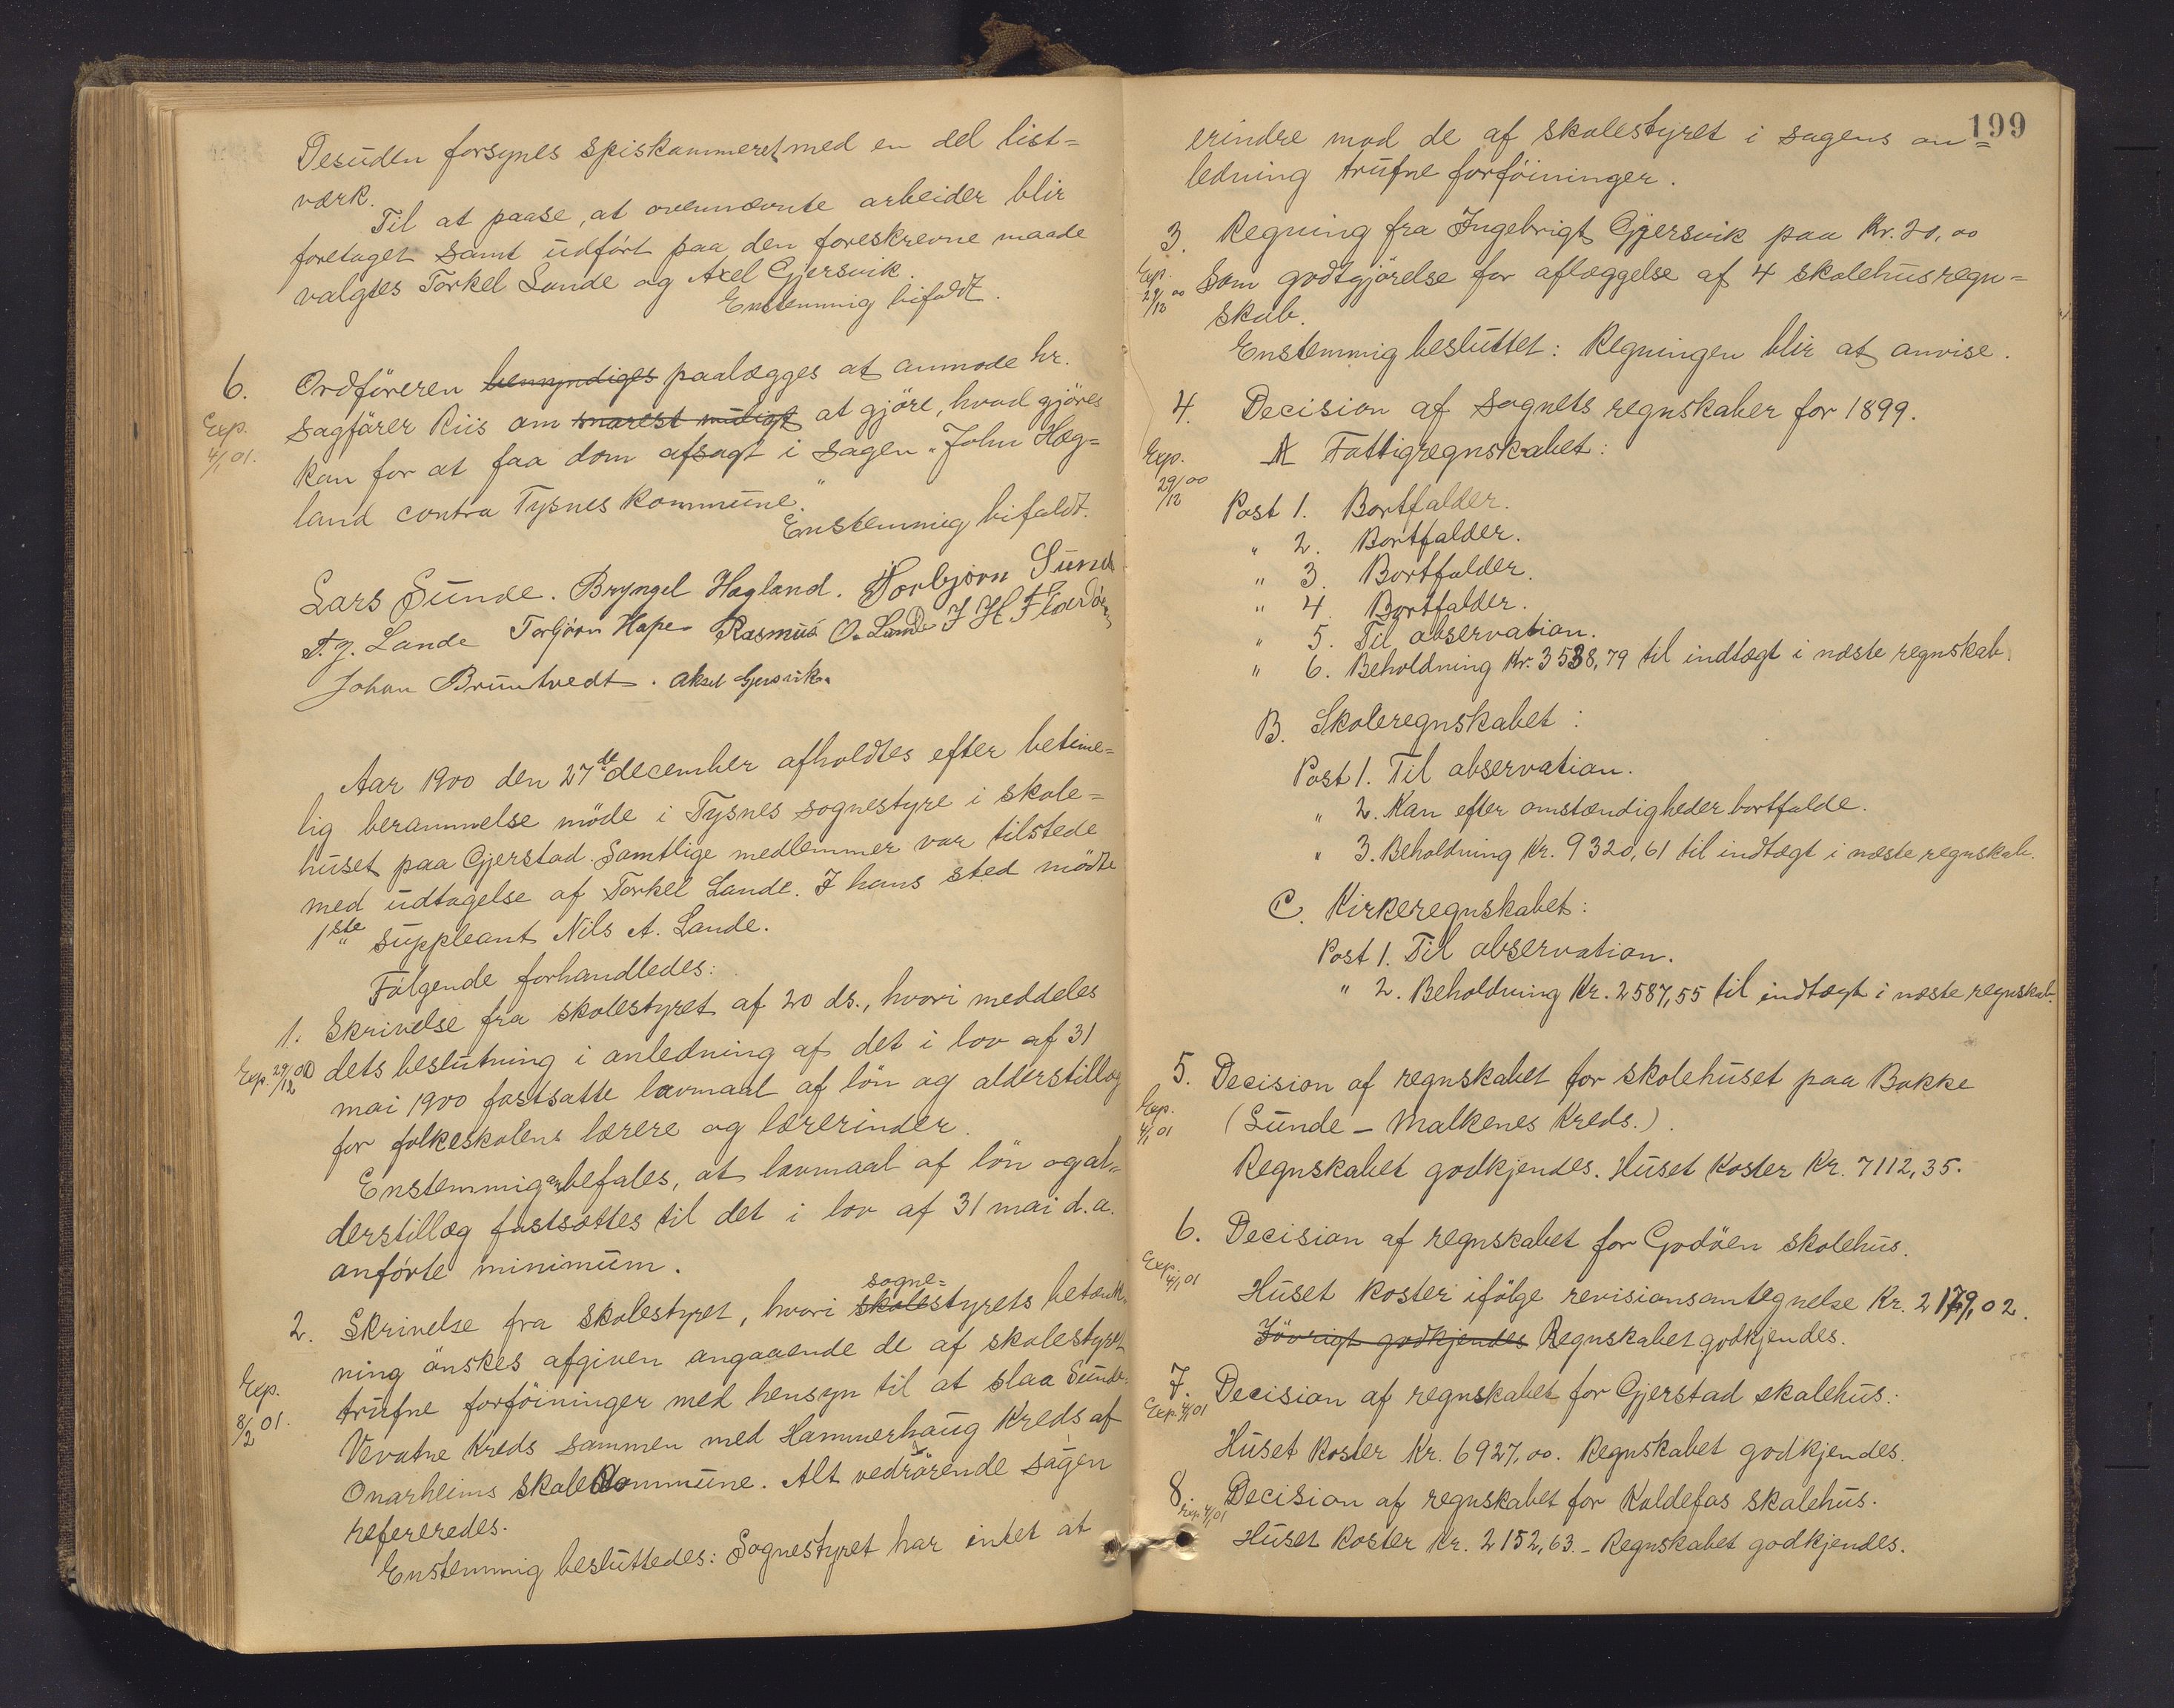 Desuden forsynes spiskammeret med en del list=
værk.
Til at paase, at ovennævnte arbeider blir
foretaget samt udført paa den foreskrevne maade
valgtes Torkel Lande og Axel Gjersvik.
Enstemmig bifaldt.
6. Ordföreren bemyndiges paalægges at anmode hr.
Exp. 4/1 01.
sagförer Riis om snarest muligt at gjöre, hvad gjöres
kan for at faa dom afsagt i sagen "John Heg=
land contra Tysnes kommune."
Enstemmig bifaldt.
Lars Sunde. Bryngel Hagland. Torbjørn Sunde
T. J. Lande Torbjörn Hope Rasmus O. Lunde J H Flaadöen
Johan Bruntvedt. Aksel Gjersvik.
Aar 1900 den 27de december afholdtes efter betime=
lig berammelse möde i Tysnes sognestyre i skole=
huset paa Gjerstad. Samtlige medlemmer var tilstede
med udtagelse af Torkel Lande. I hans sted mödte
1ste suppleant Nils A. Lande.
Fölgende forhandledes:
1. Skrivelse fra skolestyret af 20 ds., hvori meddeles
Exp. 29/12 00
dets beslutning i anledning af det i lov af 31
mai 1900 fastsatte lavmaal af lön og alderstillæg
for folkeskolens lærere og lærerinder.
Enstemmig anbefales, at lavmaal af lön og al=
derstillæg fastsættes til det i lov af 31 mai d.a.
anförte minimum.
2. Skrivelse fra skolestyret, hvori skole sogne=styrets betænk=
ning önskes afgiven angaaende de af skolestyret
Exp. 8/2 01.
trufne forföininger med hensyn til at slaa Sunde-
Vevatne kreds sammen med Hammerhaug kreds af
Onarheims skolekommune. Alt vedrörende sagen
refereredes.
Enstemmig besluttedes: Sognestyret har intet at
199
erindre mod de af skolestyret i sagens an=
ledning trufne forföininger.
3. Regning fra Ingebrigt Gjersvik paa Kr. 20,00
Exp. 29/12 00
som godtgjörelse for aflæggelse af 4 skolehusregn=
skab.
Enstemmig besluttet: Regningen blir at anvise.
4. Decision af sognets regnskaber for 1899.
Exp. 29/12 00
A Fattigregnskabet:
Post 1. Bortfalder.
" 2. Bortfalder.
" 3. Bortfalder.
" 4. Bortfalder.
" 5. Til observation.
" 6. Beholdning Kr. 3538,79 til indtægt i næste regnskab.
B. Skoleregnskabet:
Post 1. Til observation.
" 2. Kan efter omstændigheder bortfalde.
" 3. Beholdning Kr. 9320,61 til indtægt i næste regnskab.
C. Kirkeregnskabet:
Post 1. Til observation.
" 2. Beholdning Kr. 2587,55 til indtægt i næste regnskab.
5. Decision af regnskabet for skolehuset paa Bakke
Exp. 4/1 01
(Sunde - Malkenes Kreds.).
Regnskabet godkjendes. Huset koster Kr. 7112,35.
6. Decision af regnskabet for Godöen skolehus.
Exp. 4/1 01
Huset koster ifölge revisionsantegnelse Kr. 2179,02.
Iövrigt godkjendes Regnskabet godkjendes.
7. Decision af regnskabet for Gjerstad skolehus.
Exp. 4/1 01
Huset koster Kr. 6927,00. Regnskabet godkjendes.
8. Decision af regnskabet for Kaldefos skolehus.
Exp. 4/1 01
Huset koster Kr. 2152,63. - Regnskabet godkjendes.